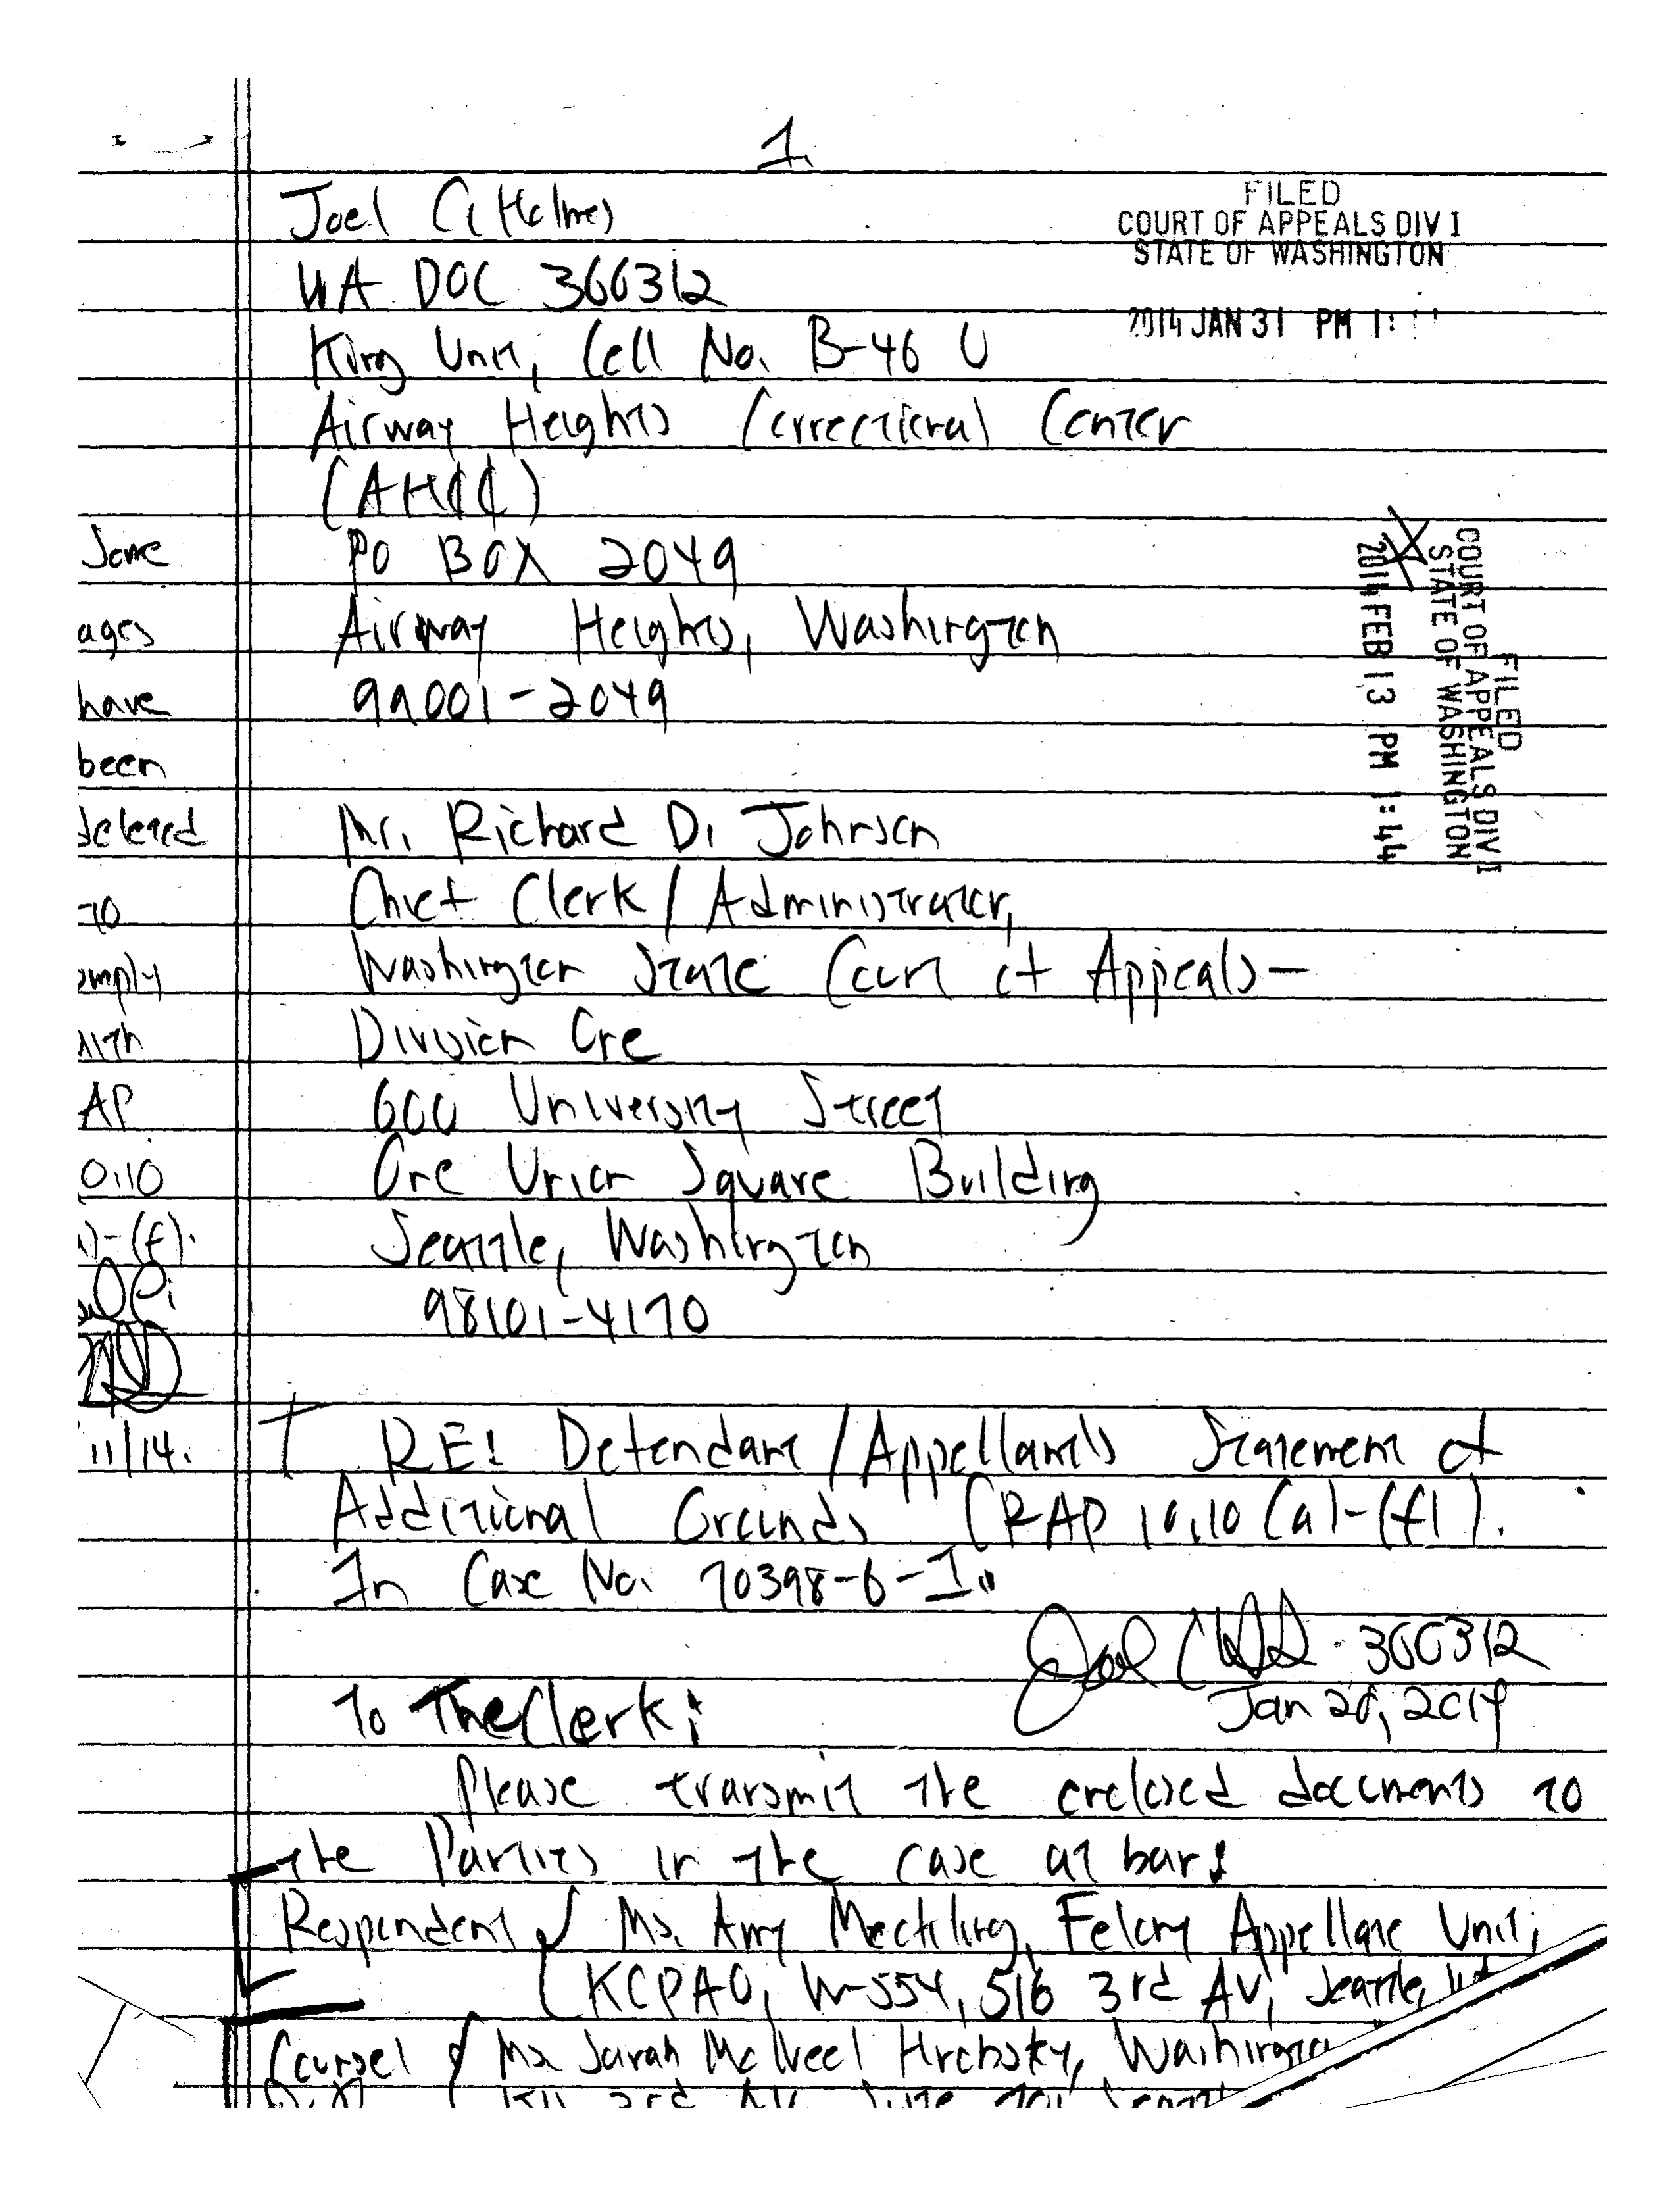 1.
Joel C. Holmes
WA DOC 366312
King Unit, Cell No. B-46 U
Airway Heights Correctional Center
(AHCC)
PO BOX 2049
Airway Heights, Washington
99001-2049
FILED
COURT OF APPEALS DIV I
STATE OF WASHINGTON
2014 JAN 31 PM 1:
FILED
COURT OF APPEALS DIV I
STATE OF WASHINGTON
2014 FEB 13 PM 1:44
Some
ages
have
been
deleted
to
omply
with
AP
0.10
)-(f).
11/14.
Mr. Richard D. Johnson
Chief Clerk / Administrator,
Washington State Court of Appeals-
Division One
600 University Street
One Union Square Building
Seattle, Washington
98101-4170
RE: Defendant/Appellant's Statement of
Additional Grounds (RAP 10.10 (a)-(f)).
In Case No. 70398-6-I.
Joel 366312
Jan 28, 2014
To The Clerk:
Please transmit the enclosed documents to
the Parties in the case at bar:
Respondent { Ms. Amy Meckling, Felony Appellate Unit;
KCPAO, W-554, 516 3rd AV, Seattle,
Counsel { Ms Sarah McNeel Hrobsky,
3rd AV